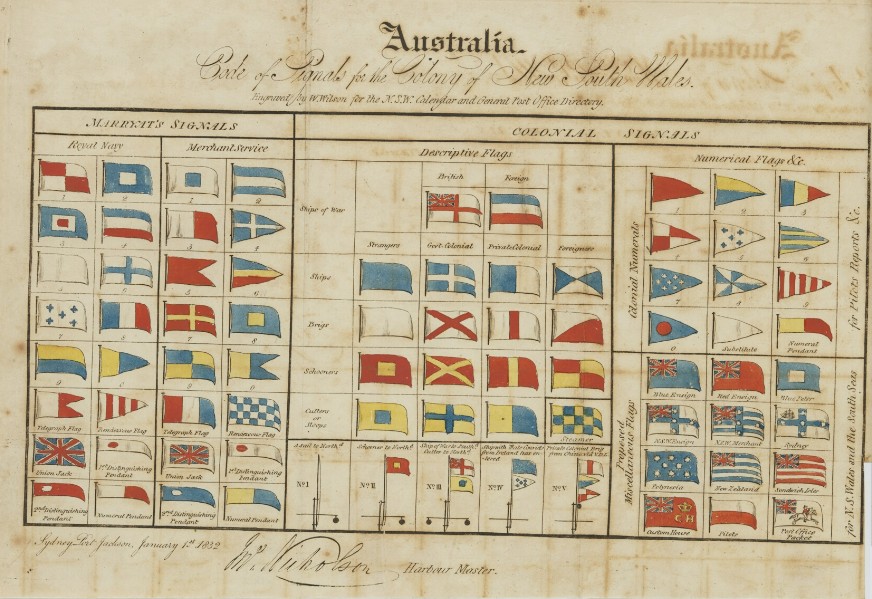 Australia.
Code of Signals for the Colony of New South Wales.
Engraved by W. Wilson for the N.S.W. Calendar and General Post Office Directory.
MARRYAT'S SIGNALS
COLONIAL SIGNALS
Royal Navy
Merchant Service
Descriptive Flags
Numerical Flags &c.
British
Foreign
Ships of War
Strangers
Govt. Colonial
Private Colonial
Foreigners
Ships
Brigs
Schooners
Cutters or Sloops
Steamer
1
2
1
2
3
4
3
4
5
6
5
6
7
8
7
8
9
0
9
0
Telegraph Flag
Rendezvous Flag
Telegraph Flag
Rendezvous Flag
Union Jack
1st Distinguishing Pendant
Union Jack
1st Distinguishing Pendant
2nd Distinguishing Pendant
Numeral Pendant
2nd Distinguishing Pendant
Numeral Pendant
A sail to North'd
Schooner to North'd
Ship of War to South'd Cutter to North'd
Ship with Male Convicts from Ireland has entered
Private Colonial Brig from
No. I
No. II
No. III
No. IV
No. V
Colonial Numerals
for Pilots Reports &c.
1
2
3
4
5
6
7
8
9
0
Substitute
Numeral Pendant
Proposed Miscellaneous Flags
for N.S. Wales and the South Seas
Blue Ensign
Red Ensign
Blue Peter
N.S.W. Ensign
N.S.W. Merchant
Sydney
Polynesia
New Zealand
Sandwich Isles
C H
Custom House
Pilots
Post Office Packet
Sydney Port Jackson, January 1st 1832
Jno. Nicholson
Harbour Master.